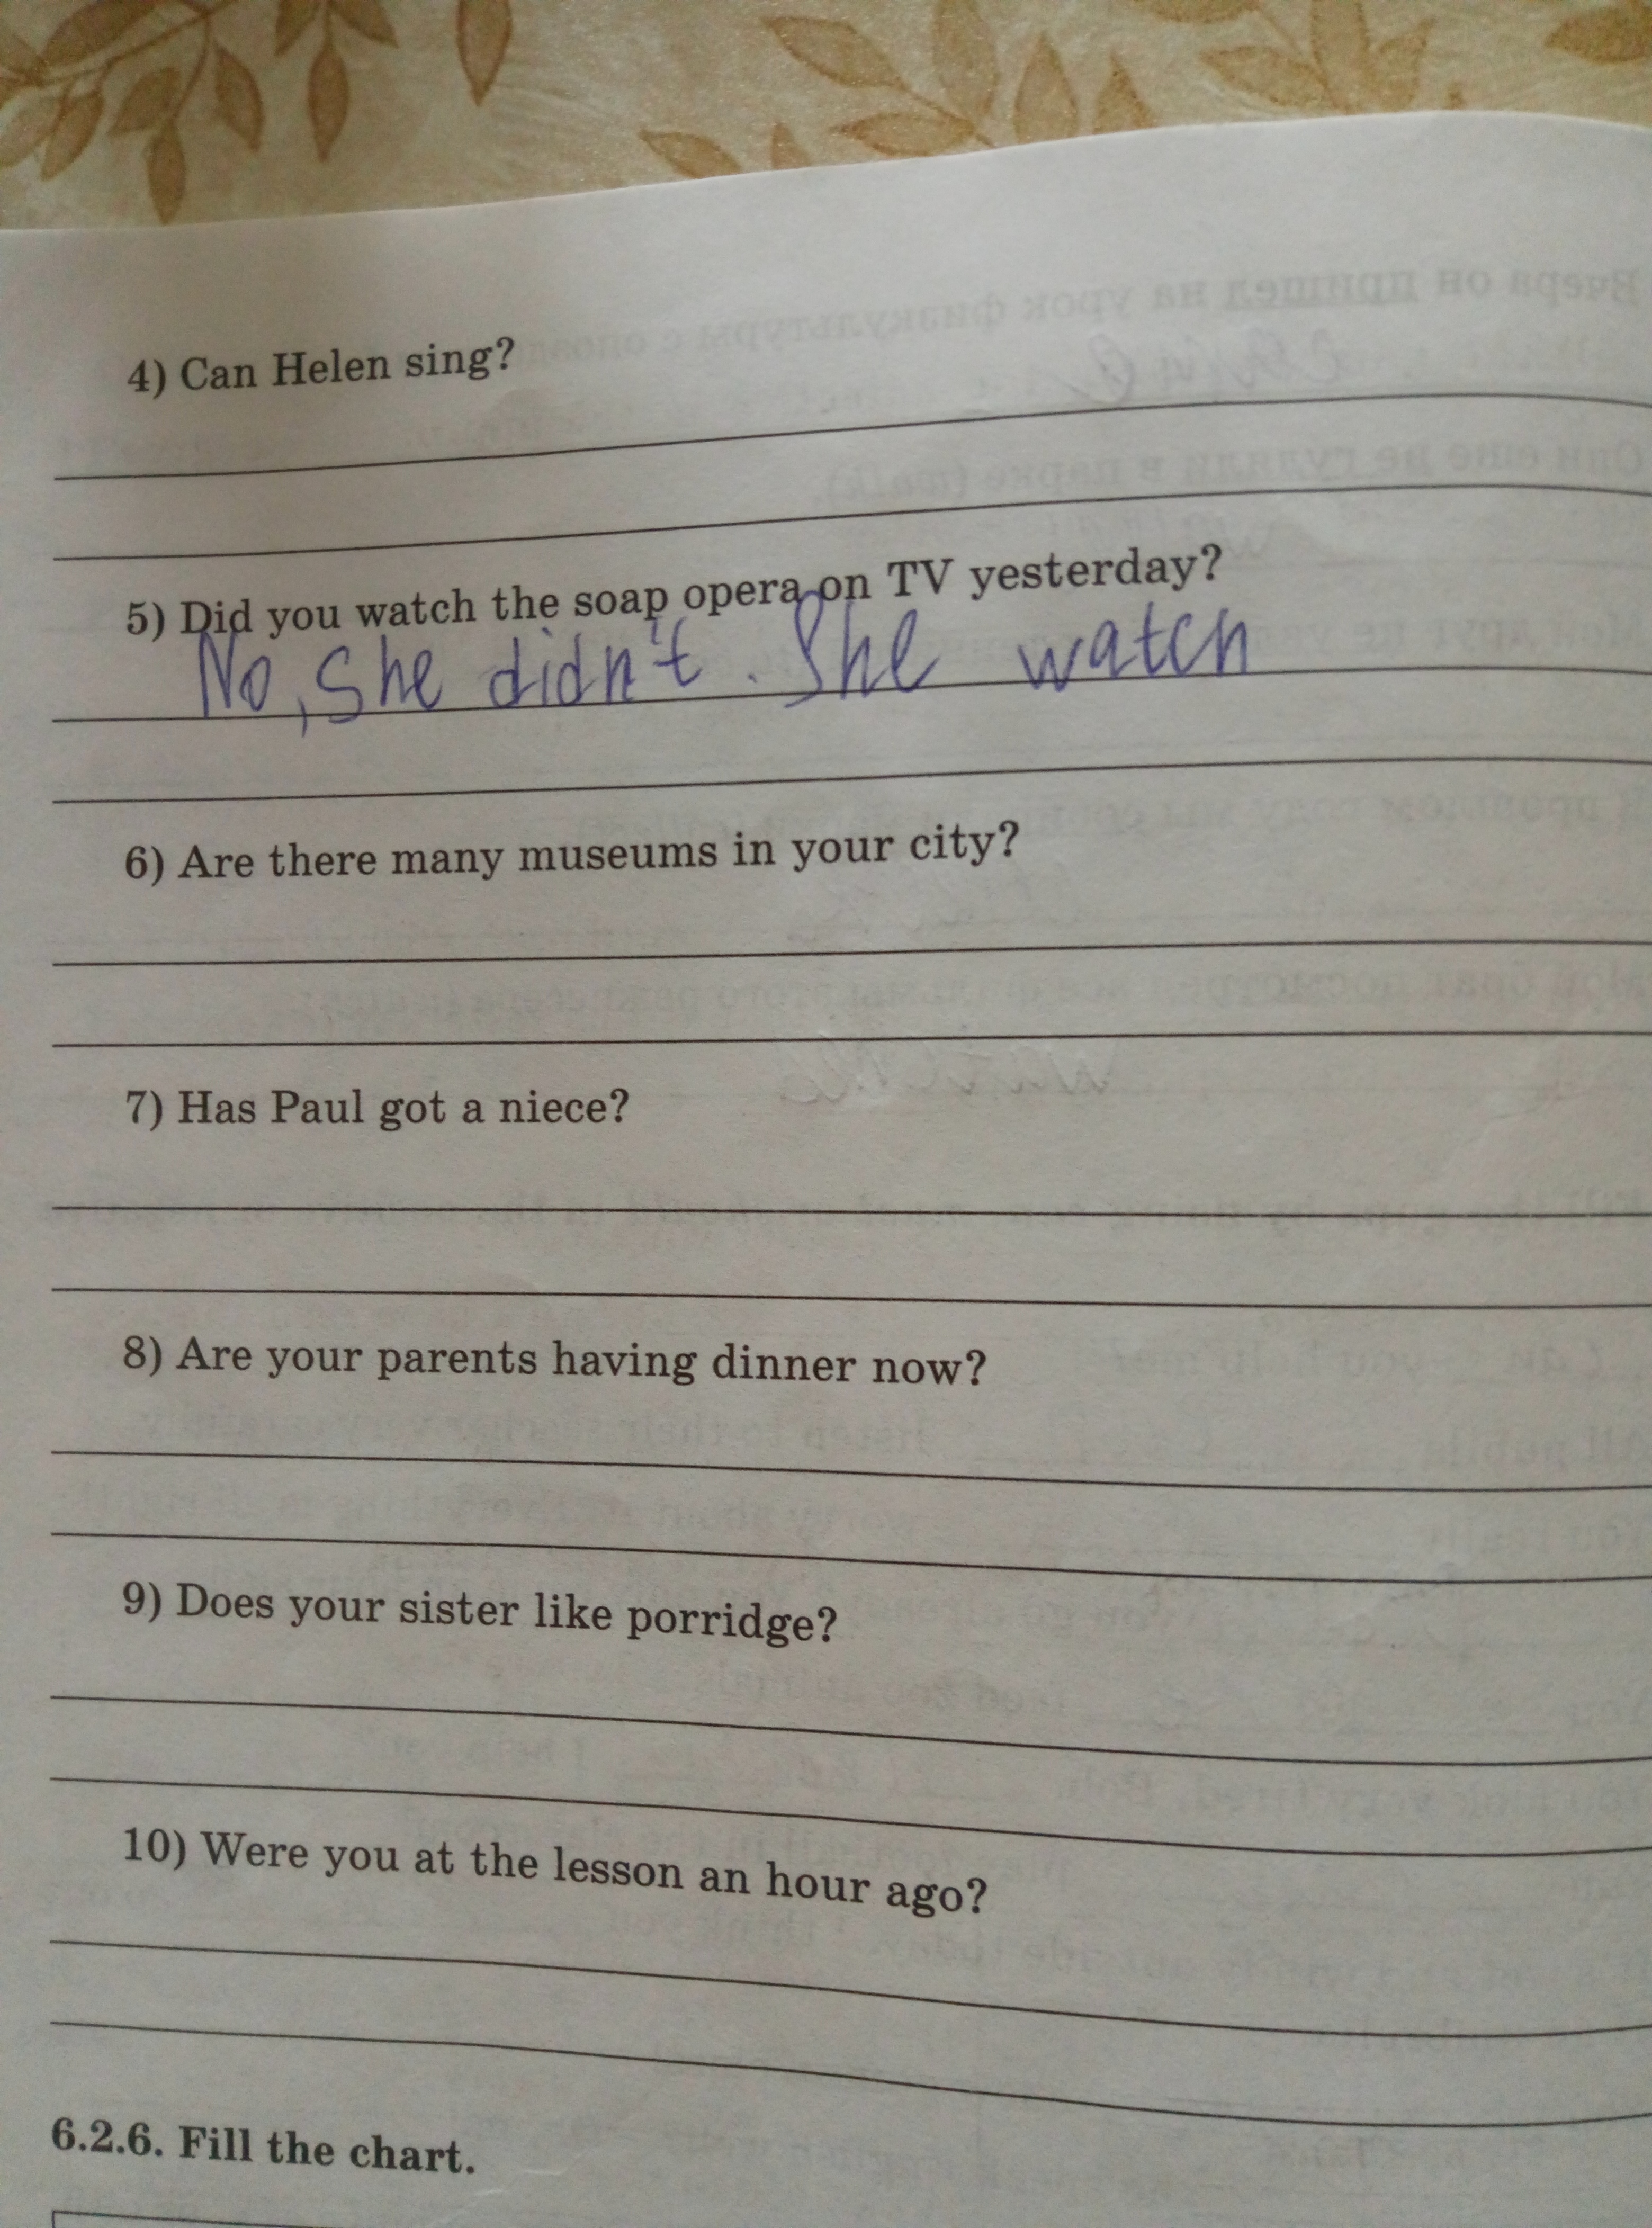 4) Can Helen sing?
5) Did you watch the soap opera on TV yesterday?
No, She didn't. She watch
6) Are there many museums in your city?
7) Has Paul got a niece?
8) Are your parents having dinner now?
9) Does your sister like porridge?
10) Were you at the lesson an hour ago?
6.2.6. Fill the chart.